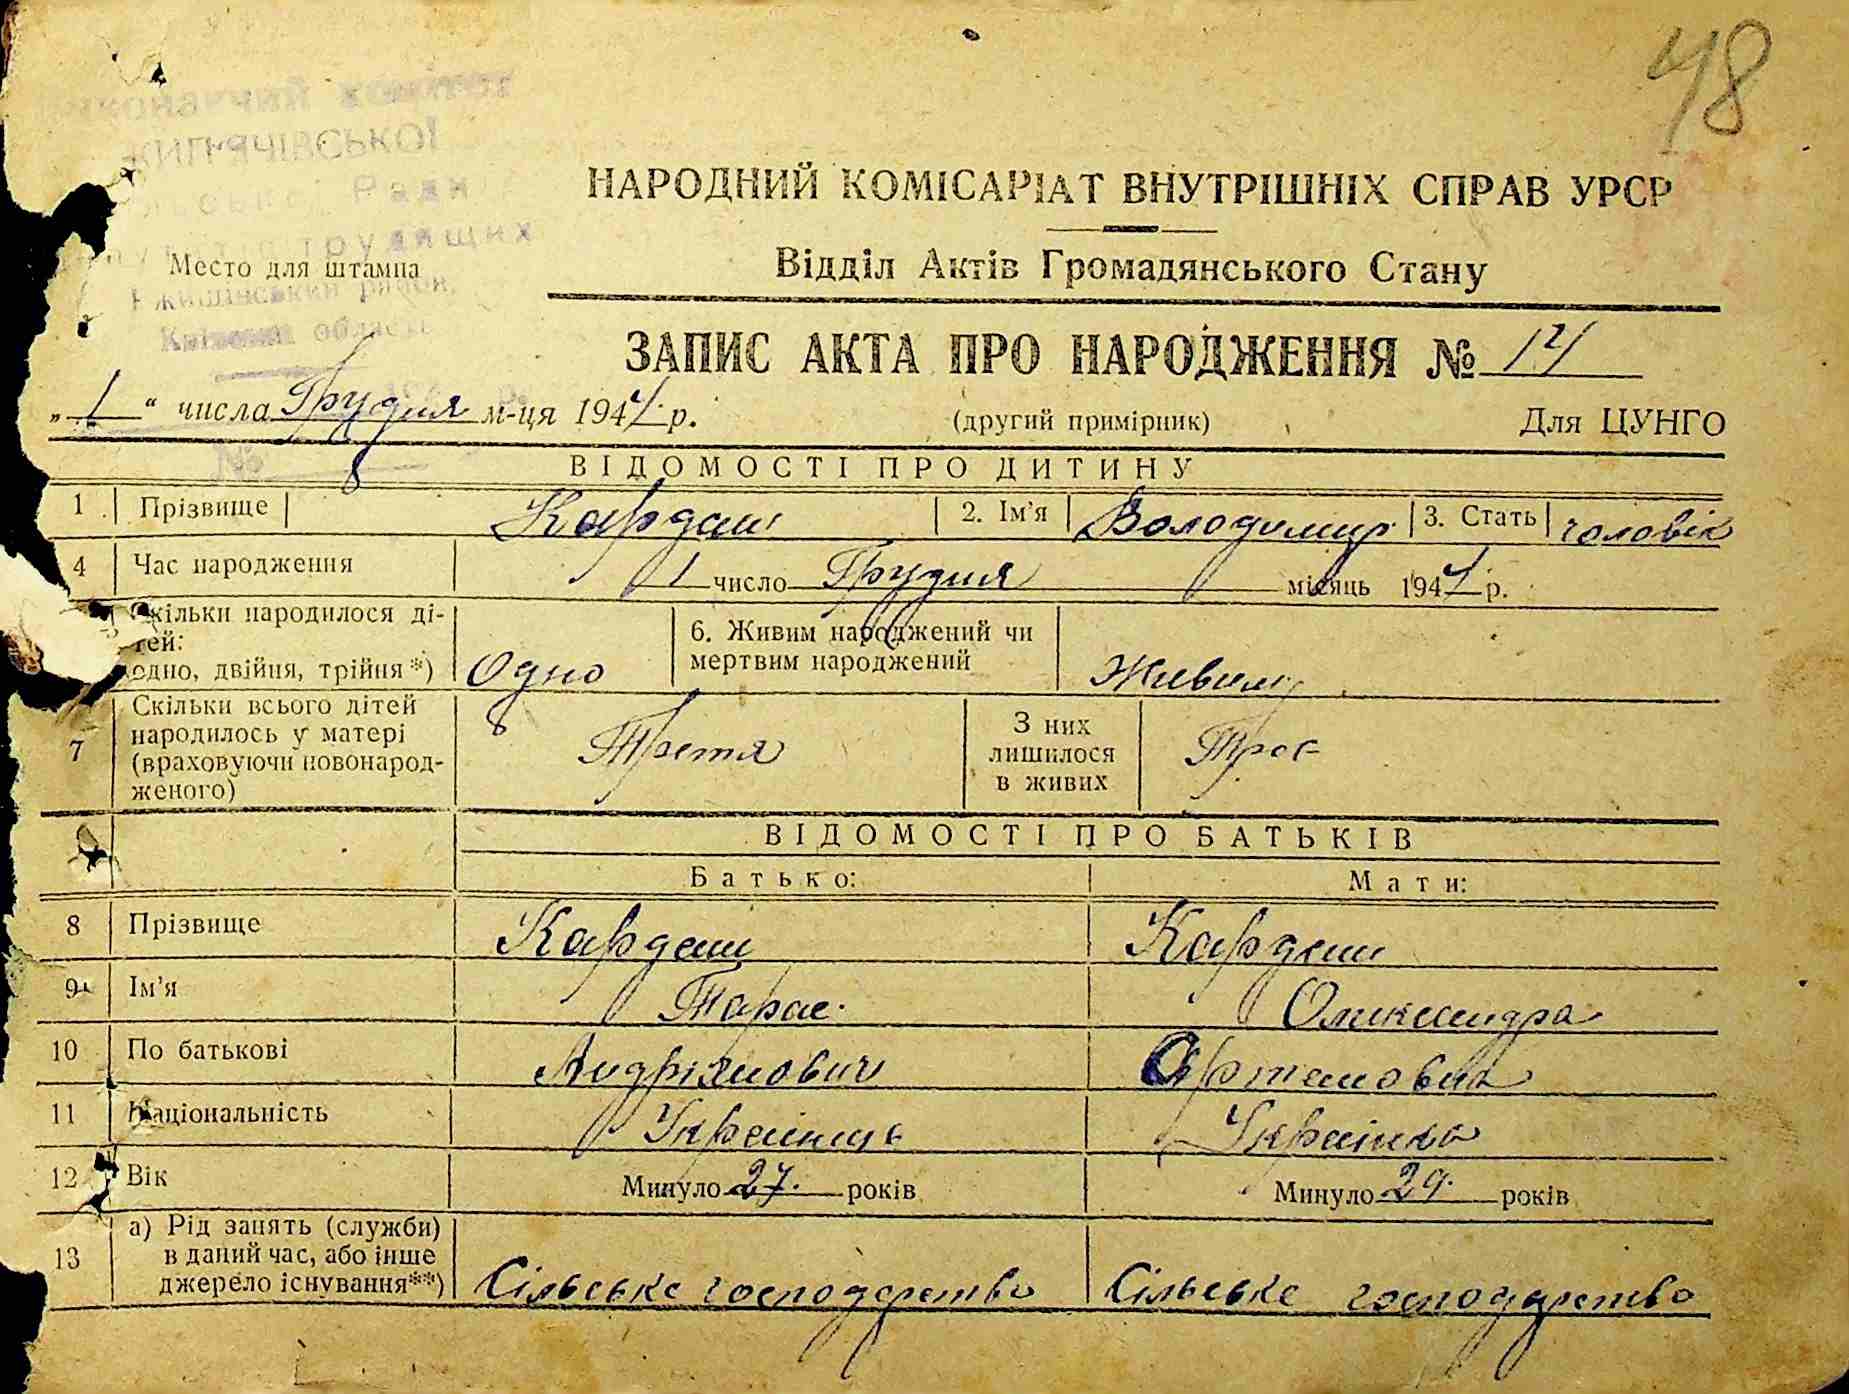 48
КИП'ЯЧІВСЬКОЇ
Ради
трудящих
Место для штампа
район,
області
НАРОДНИЙ КОМІСАРІАТ ВНУТРІШНІХ СПРАВ УРСР
Відділ Актів Громадянського Стану
ЗАПИС АКТА ПРО НАРОДЖЕННЯ № 14
„1“ числа Грудня м-ця 194 р.
(другий примірник) Для ЦУНГО
№
ВІДОМОСТІ ПРО ДИТИНУ
1 Прізвище Кардаш 2. Ім'я Володимир 3. Стать чоловік
4 Час народження 1 число Грудня місяць 194 р.
Скільки народилося ді-
тей:
одно, двійня, трійня*) Одно
6. Живим народжений чи
мертвим народжений Живим
7 Скільки всього дітей
народилось у матері
(враховуючи новонарод-
женого) Третя
З них
лишилося
в живих Троє
ВІДОМОСТІ ПРО БАТЬКІВ
Батько: Мати:
8 Прізвище Кардаш Кардаш
9 Ім'я Тарас Олександра
10 По батькові Андріянович Артемовна
11 Національність Українець Українка
12 Вік Минуло 27. років Минуло 29. років
13 а) Рід занять (служби)
в даний час, або інше
джерело існування**) Сільське господарство Сільське господарство